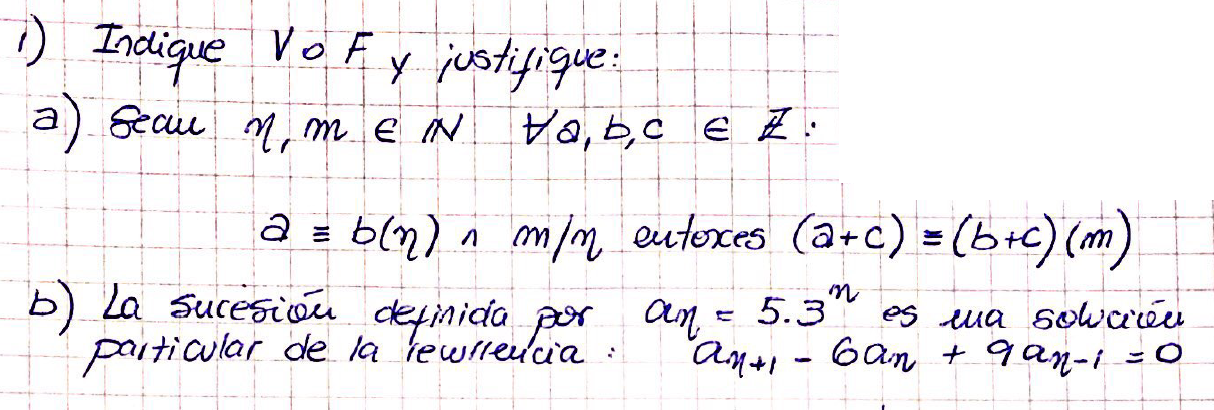 1) Indique V o F y justifique:
a) Sean n, m ∈ N ∀a, b, c ∈ Z:
a ≡ b(n) ∧ m/n entonces (a+c) ≡ (b+c)(m)
b) La sucesión definida por an = 5.3^n es una solución
particular de la recurrencia: an+1 - 6an + 9an-1 = 0